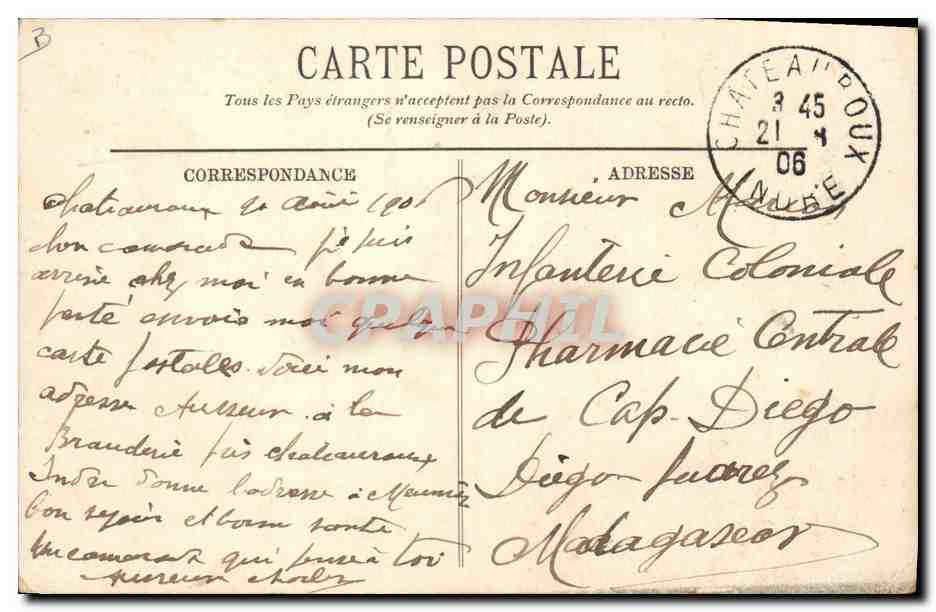 CARTE POSTALE
Tous les Pays étrangers n'acceptent pas la Correspondance au recto.
(Se renseigner à la Poste).
CHATEAUROUX
3 45
21 8
06
INDRE
CORRESPONDANCE
chateauroux 20 Août 1906
chon camarade je suis
arrivé chez moi en bonne
santé envoie moi quelque
carte postales voici mon
adresse Ausseur à la
Brauderie près chateauroux
Indre donne l'adresse à Meunier
bon sejour et bonne santé
un camarade qui pense à toi
ADRESSE
Monsieur
Infanterie Coloniale
Pharmacie Centrale
de Cap-Diego
Diego Suarez
Madagascar
CPAPHIL